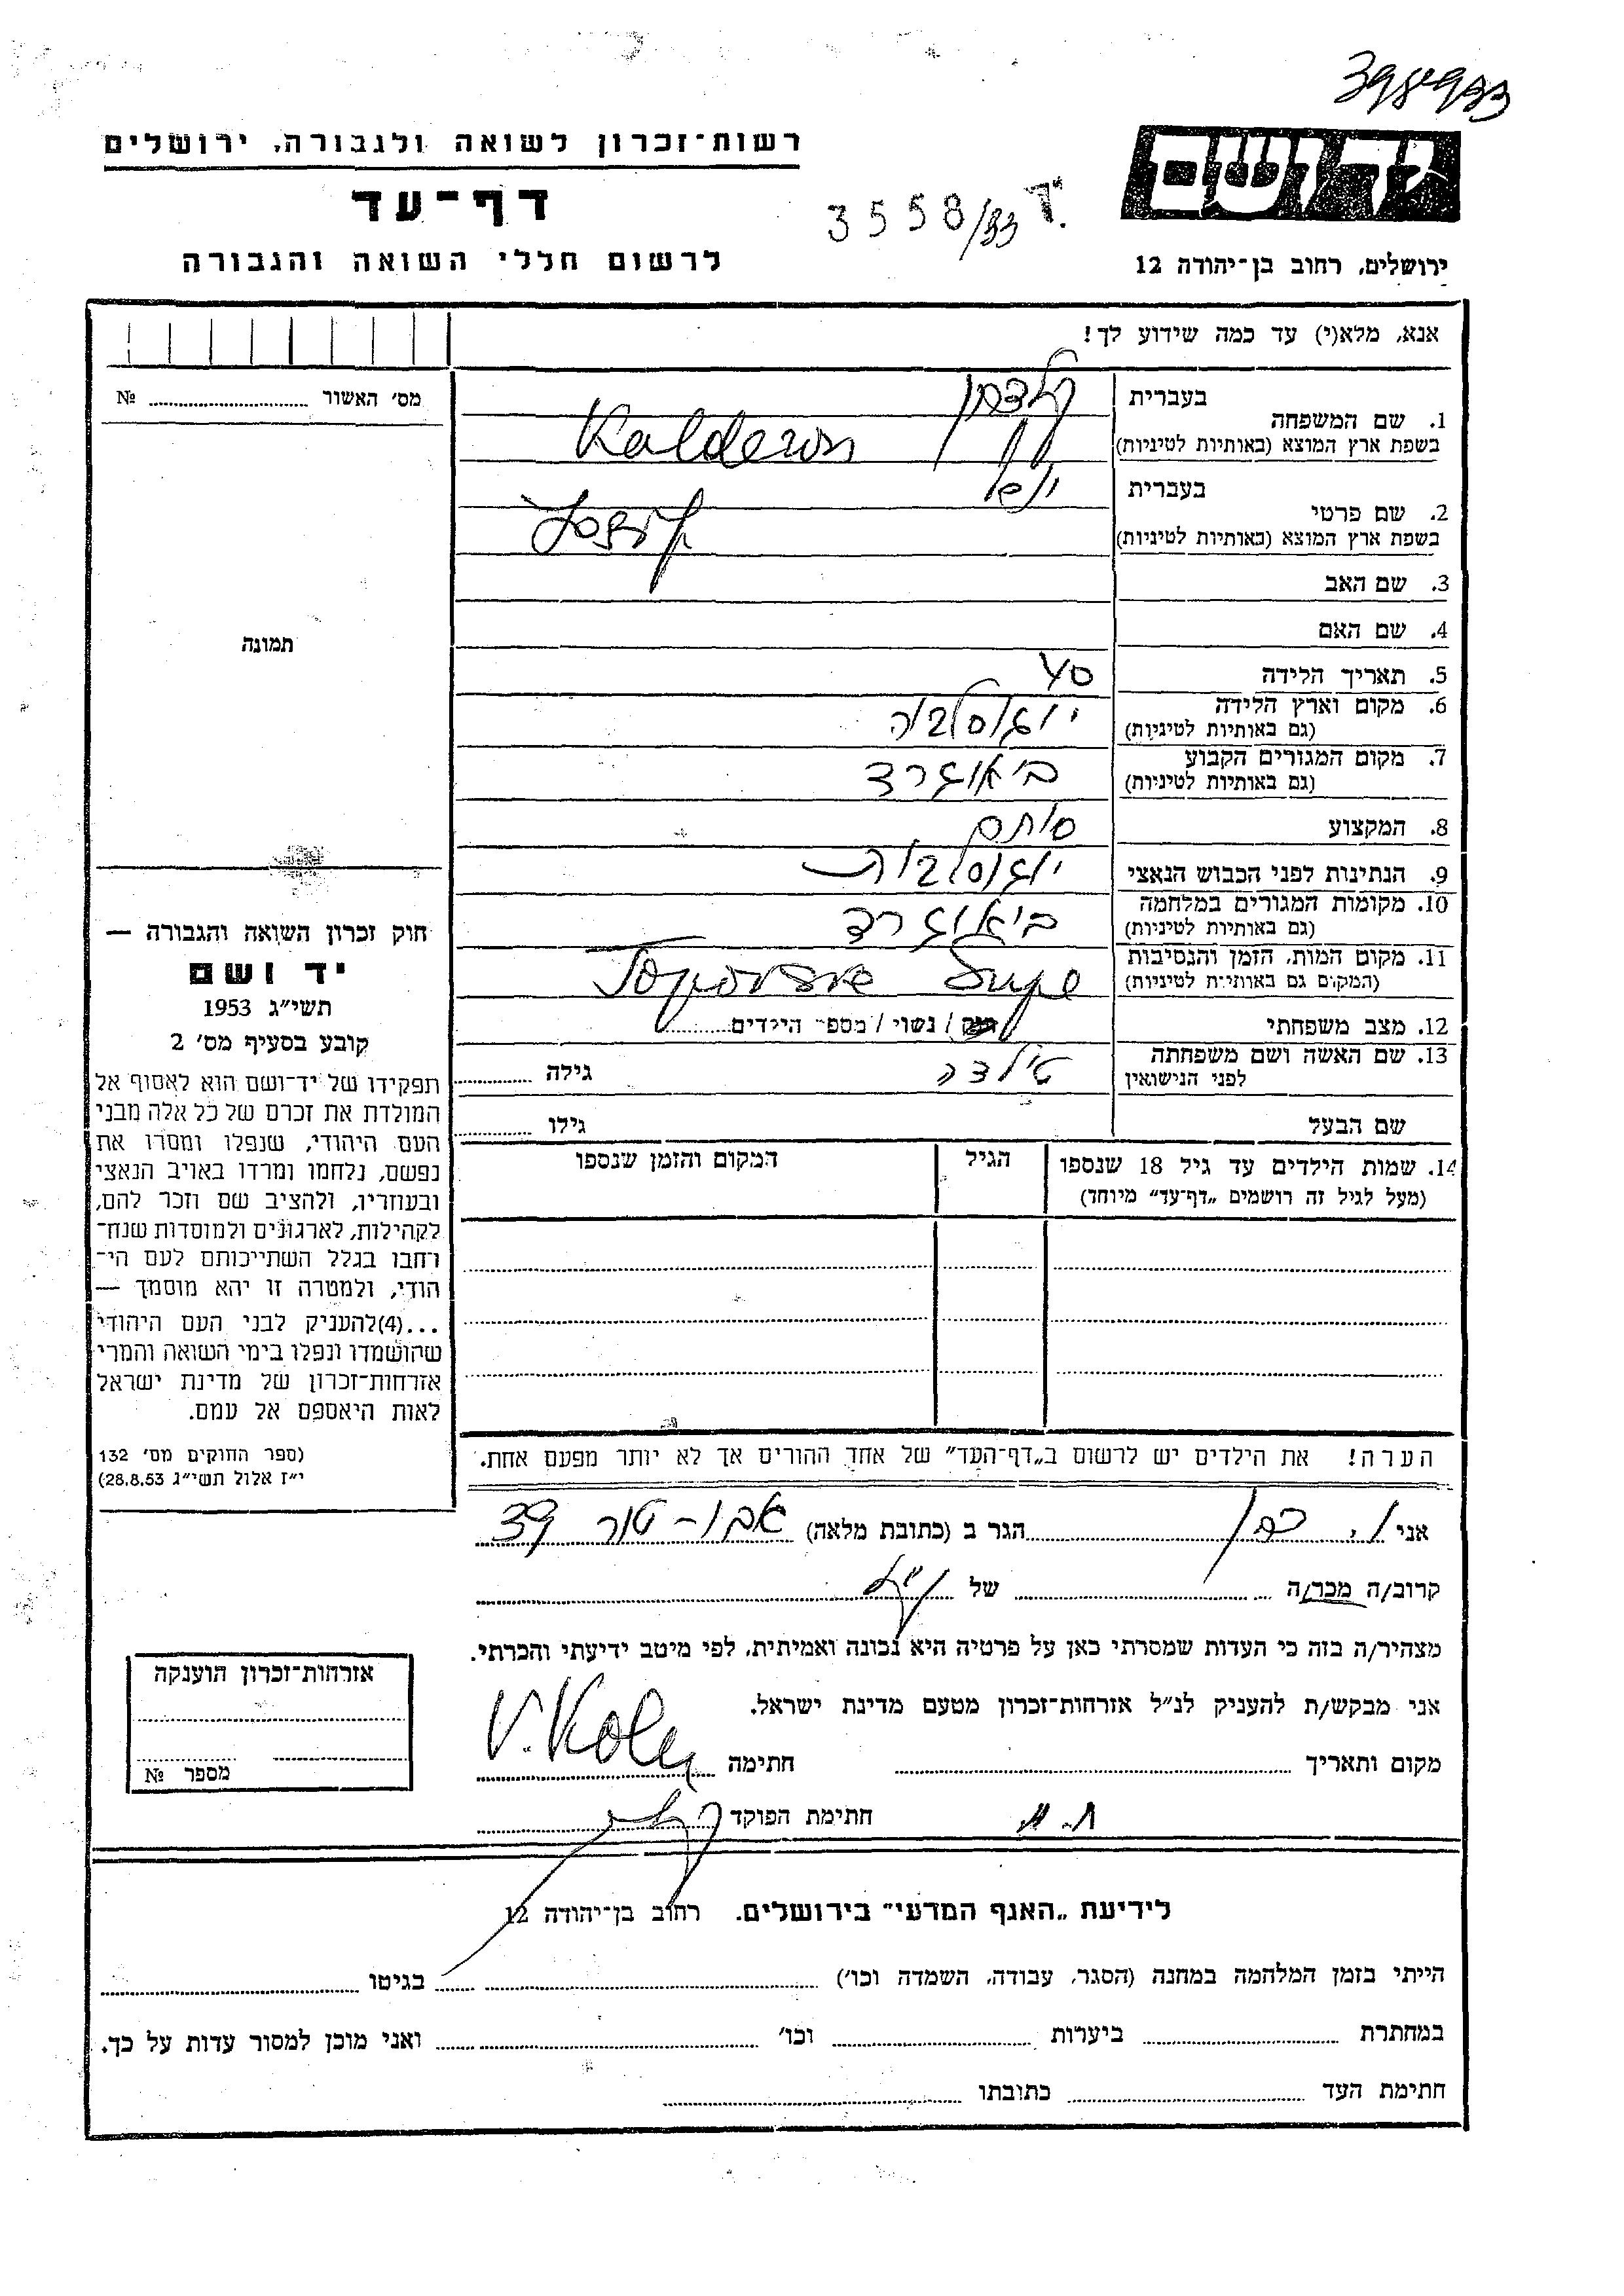 398933
יד ושם
רשות-זכרון לשואה ולגבורה, ירושלים
דף-עד
3558/83
לרשום חללי השואה והגבורה
ירושלים, רחוב בן-יהודה 12
אנא, מלא(י) עד כמה שידוע לך!
מס' האשור № 
1. שם המשפחה
בעברית קלדרון
בשפת ארץ המוצא (באותיות לטיניות) Kalderon
2. שם פרטי
בעברית יוסף
בשפת ארץ המוצא (באותיות לטיניות) Josif
3. שם האב
4. שם האם
תמונה
5. תאריך הלידה
6. מקום וארץ הלידה יוגוסלביה
(גם באותיות לטיניות)
7. מקום המגורים הקבוע ביאוגרד
(גם באותיות לטיניות)
8. המקצוע סוחר
9. הנתינות לפני הכבוש הנאצי יוגוסלבית
10. מקומות המגורים במלחמה ביאוגרד
(גם באותיות לטיניות)
11. מקום המות, הזמן והנסיבות Topovske Šupe
(המקום גם באותיות לטיניות)
12. מצב משפחתי רווק / נשוי / מספר הילדים
13. שם האשה ושם משפחתה
לפני הנישואין טילדה גילה
שם הבעל גילו
14. שמות הילדים עד גיל 18 שנספו הגיל המקום והזמן שנספו
(מעל לגיל זה רושמים „דף-עד״ מיוחד)
חוק זכרון השואה והגבורה —
יד ושם
תשי״ג 1953
קובע בסעיף מס' 2
תפקידו של יד-ושם הוא לאסוף אל
המולדת את זכרם של כל אלה מבני
העם היהודי, שנפלו ומסרו את
נפשם, נלחמו ומרדו באויב הנאצי
ובעוזריו, ולהציב שם וזכר להם,
לקהילות, לארגונים ולמוסדות שנח-
רחבו בגלל השתייכותם לעם הי-
הודי, ולמטרה זו יהא מוסמך —
...(4)להעניק לבני העם היהודי
שהושמדו ונפלו בימי השואה והמרי
אזרחות-זכרון של מדינת ישראל
לאות היאספם אל עמם.
(ספר החוקים מס' 132
י״ז אלול תשי״ג 28.8.53)
הערה! את הילדים יש לרשום ב„דף-העד״ של אחד ההורים אך לא יותר מפעם אחת.
אני הגר ב (כתובת מלאה) אבו-טור 39
קרוב/ה מכר/ה של
מצהיר/ה בזה כי העדות שמסרתי כאן על פרטיה היא נכונה ואמיתית, לפי מיטב ידיעתי והכרתי.
אני מבקש/ת להעניק לנ״ל אזרחות-זכרון מטעם מדינת ישראל.
מקום ותאריך חתימה
חתימת הפוקד
אזרחות-זכרון הוענקה
מספר №
לידיעת „האגף המדעי״ בירושלים, רחוב בן-יהודה 12
הייתי בזמן המלחמה במחנה (הסגר, עבודה, השמדה וכו') בגיטו
במחתרת ביערות וכו' ואני מוכן למסור עדות על כך.
חתימת העד כתובתו